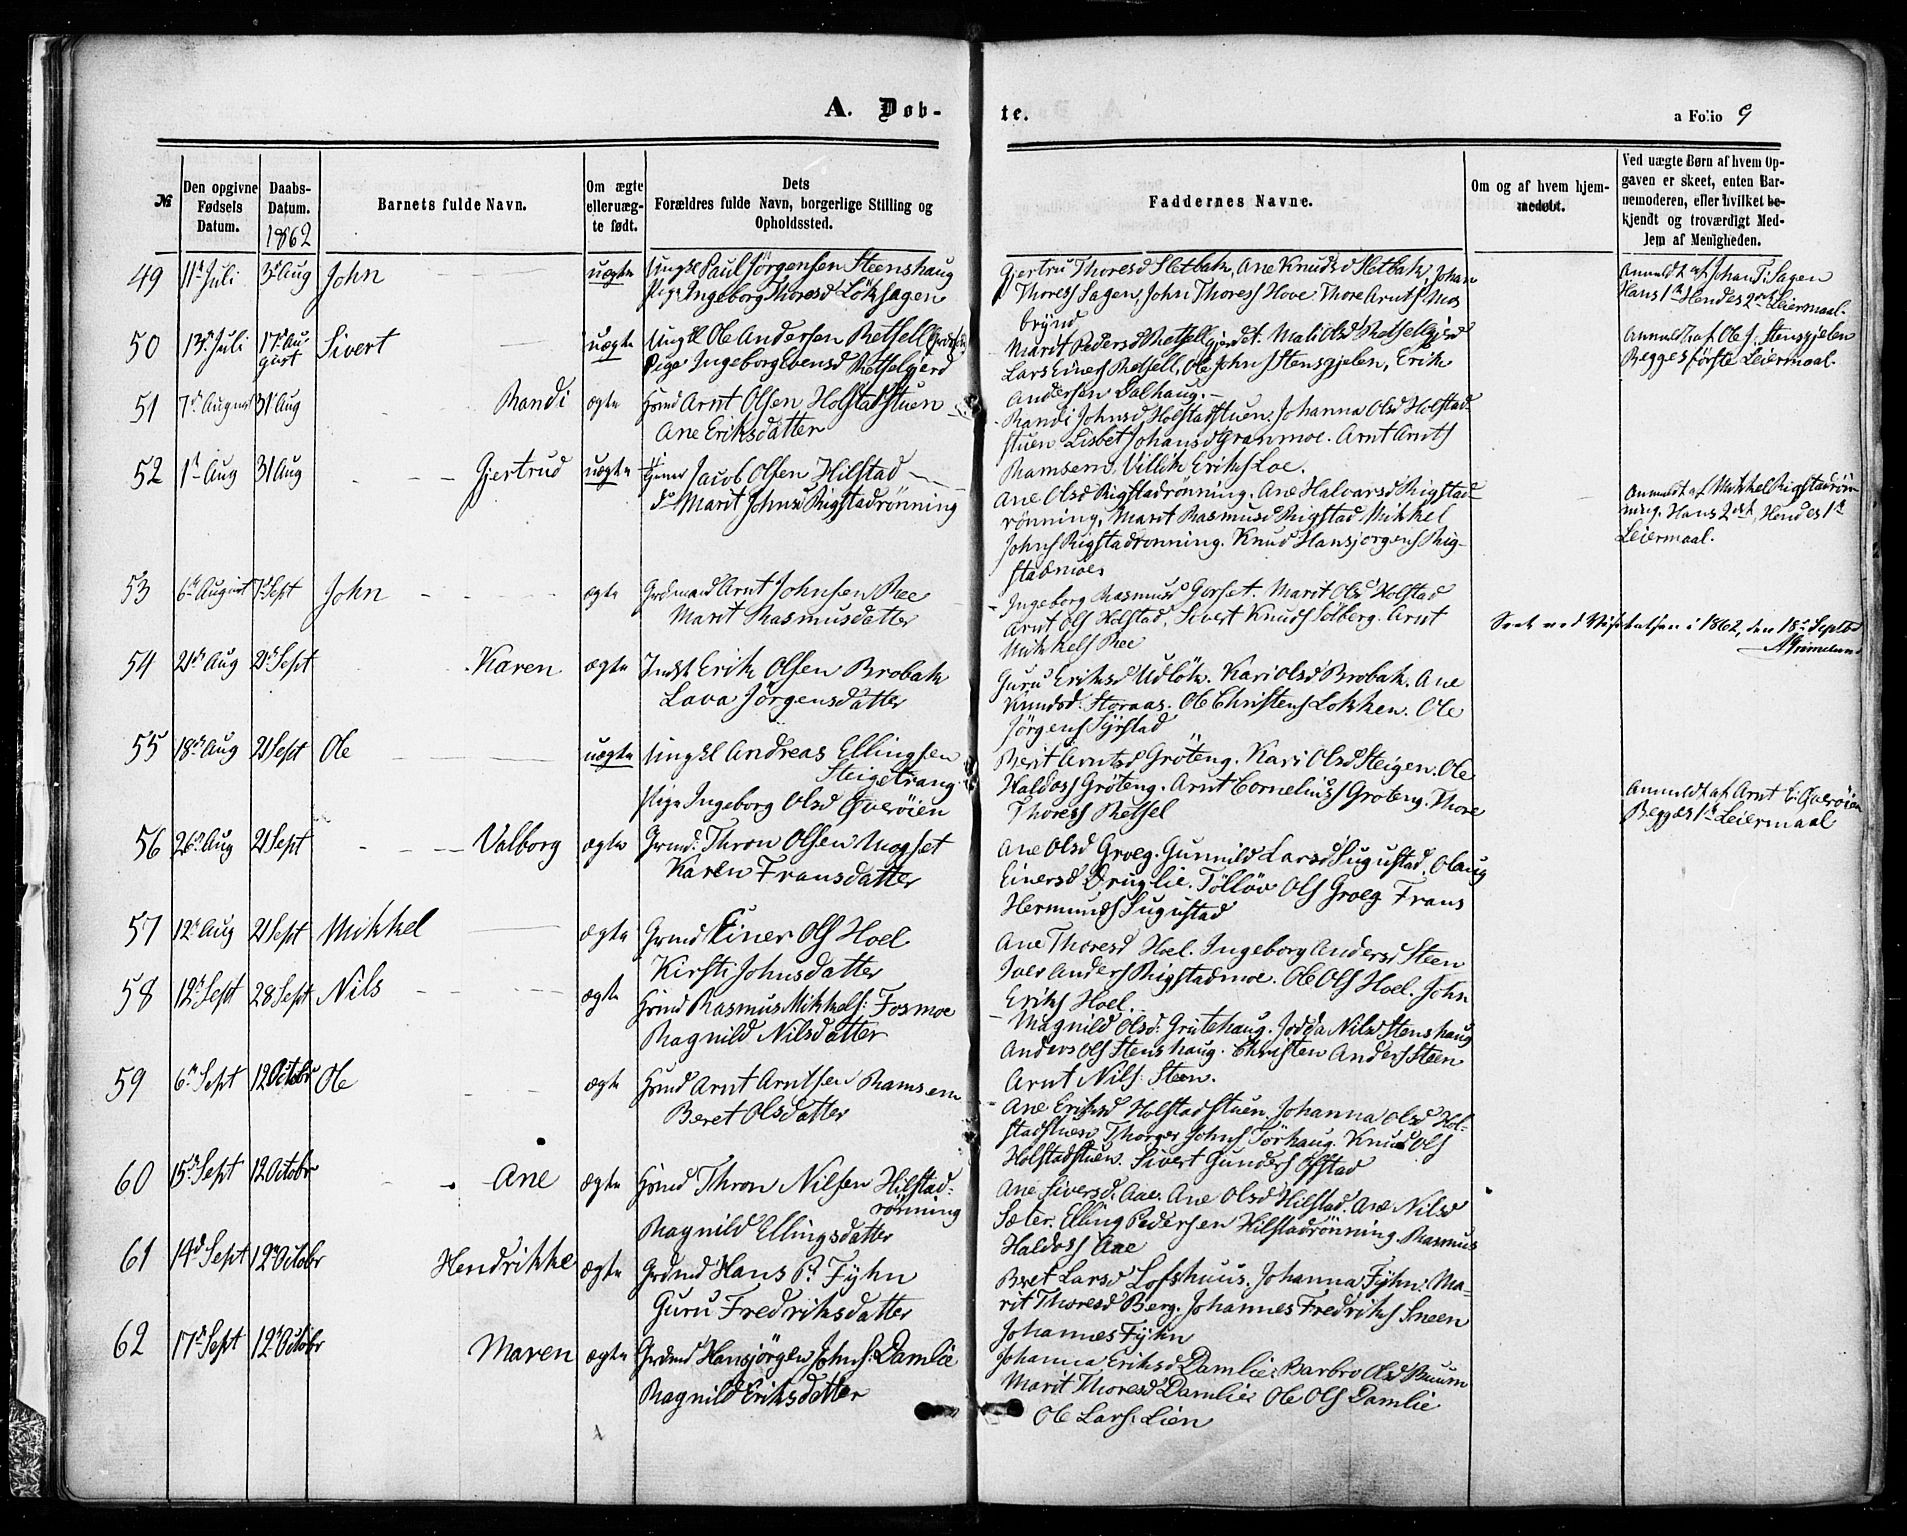 A. Døb-
te.
a Folio 9
№
Den opgivne Fødsels Datum.
Daabs-Datum.
1862
Barnets fulde Navn.
Om ægte eller uæg-te født.
Dets
Forældres fulde Navn, borgerlige Stilling og Opholdssted.
Faddernes Navne.
Om og af hvem hjem-medøbt.
Ved uægte Børn af hvem Op-gaven er skeet, enten Bar-nemoderen, eller hvilket be-kjendt og troværdigt Med-lem af Menigheden.
49 11te Juli 3die Aug John uægte Ungkl Paul Jörgensen Steenshaug
Pige Ingeborg Thoresd Lökhagen
Gjertru Thoresd Sletbak, Ane Knudsd Sletbak, Johan
Thoress Sagen, John Thoress Hove Thore Arnts Mos
brÿnd
Anmeldt af Johan T. Sagen
Hans 1ste Hendes 2det Leiermaal.
50 13de Juli 17de Au-
gust Sivert uægte Ungkl Ole Andersen Retsell
Pige Ingeborg Evensd Retselgjerd
Marit Pedersd Retsellgjerdet. Mali Olsd Retselgjerd
Lars Einers Retsell, Ole Johns Stensgjelen, Erik
Andersen Dalhaug.
Anmeldt af Ole J. Stensgjelen
Begges förste Leiermaal.
51 7de August 31 Aug Randi ægte Hmd Arnt Olsen Holstadstuen
Ane Eriksdatter
Randi Johnsd Holstadstuen, Johanna Olsd Holstad-
stuen Lisbet Johansd Granmoe. Arnt Arnts
Ramsem. Villik Eriks Loe.
52 1ste Aug 31 Aug Gjertrud uægte Jacob Olsen Hilstad
do Marit Johnsd Rigstadrönning
Ane Olsd Rigstadrönning. Ane Halvarsd Rigstad-
rönning, Marit Rasmusd Rigstad Mikkel
Johns Rigstadronning. Knud Hansjörgens Rig-
stadmoes
Anmeldt af Mikkel Rigstadrön-
ning. Hans 2det, Hendes 1ste
Leiermaal.
53 6te August 7de Sept John ægte Grdmand Arnt Johnsen Ree
Marit Rasmusdatter
Ingeborg Rasmusd Gorset. Marit Olsd Holstad
Arnt Ols Holstad, Sivert Knuds Solberg. Arnt
Mikkels Ree
Seet ved Visitatsen i 1862, den 18de Septbr
54 21de Aug 21de Sept Karen ægte Indst Erik Olsen Brobak
Lava Jörgensdatter
Guru Eriksd Udlök. Kari Olsd Brobak. Ane
Knudsd. Storaas. Ole Christens Lokken. Ole
Jörgens Sÿrstad
55 18de Aug 21 Sept Ole uægte Ungkl Andreas Ellingsen
Steigetrang
Pige Ingeborg Olsd Qveröien
Berit Arntsd Gröteng. Kari Olsd Steigen. Ole
Haldos Gröteng. Arnt Cornelius Groteng. Thore
Thoress Retsel
Anmeldt af Arnt E. Qveröien
Begges 1ste Leiermaal
56 26de Aug 21 Sept Valborg ægte Grmd. Thron Olsen Mogset
Karen Fransdatter
Ane Olsd Groeg. Gunnild Larsd Sugustad. Olaug
Einersd Druglie. Tölløv Ols Groeg Frans
Hermunds Sugustad
57 12te Aug 21 Sept Mikkel ægte Grmd Einer Ols Hoel
Kirsti Johnsdatter
Ane Thoresd Hoel. Ingeborg Andersd Steen
Iver Anders Rigstadmoe. Ole Ols Hoel. John
Eriks Hoel.
58 12te Sept 28 Sept Nils ægte Hmd Rasmus Mikkels: Fosmoe
Ragnild Nilsdatter
Magnild Olsd. Grutehaug. Jodda Nilsd Stenshaug
Anders Ols Stenshaug. Christen Anders Steen
Arnt Nils: Steen.
59 6te Sept 12 Octobr Ole ægte Hmd Arnt Arntsen Ramsem
Beret Olsdatter
Ane Eriksd Holstadstuen. Johanna Olsd Hol-
stadstuen Thorger Johns Torhaug. Knud Ols
Holstadstuen. Sivert Gunders Ofstad
60 15de Sept 12 Octobr Ane ægte Hmd Thron Nilsen Hilstad-
rönning
Ragnild Ellingsdatter
Ane Siversd. Aae. Ane Olsd Hilstad. Ane Nilsd
Sæter. Elling Pedersen Hilstadrönning. Rasmus
Haldos Aae
61 14de Sept 12te Octobr Hendrikke ægte Grdmd Hans P. Fÿhn
Guru Fredriksdatter
Beret Larsd Lofshuus. Johanna Fÿhn. Ma-
rit Thoresd Berg. Johannes Fredriks Sneen
Johannes Fÿhn
62 17de Sept 12te Octobr Maren ægte Grdmd Hansjörgen Johns: Damlie
Ragnild Eriksdatter
Johanna Eriksd Damlie. Barbro Olsd Buum
Marit Thoresd Damlie. Ole Ols Damlie
Ole Lars: Lien